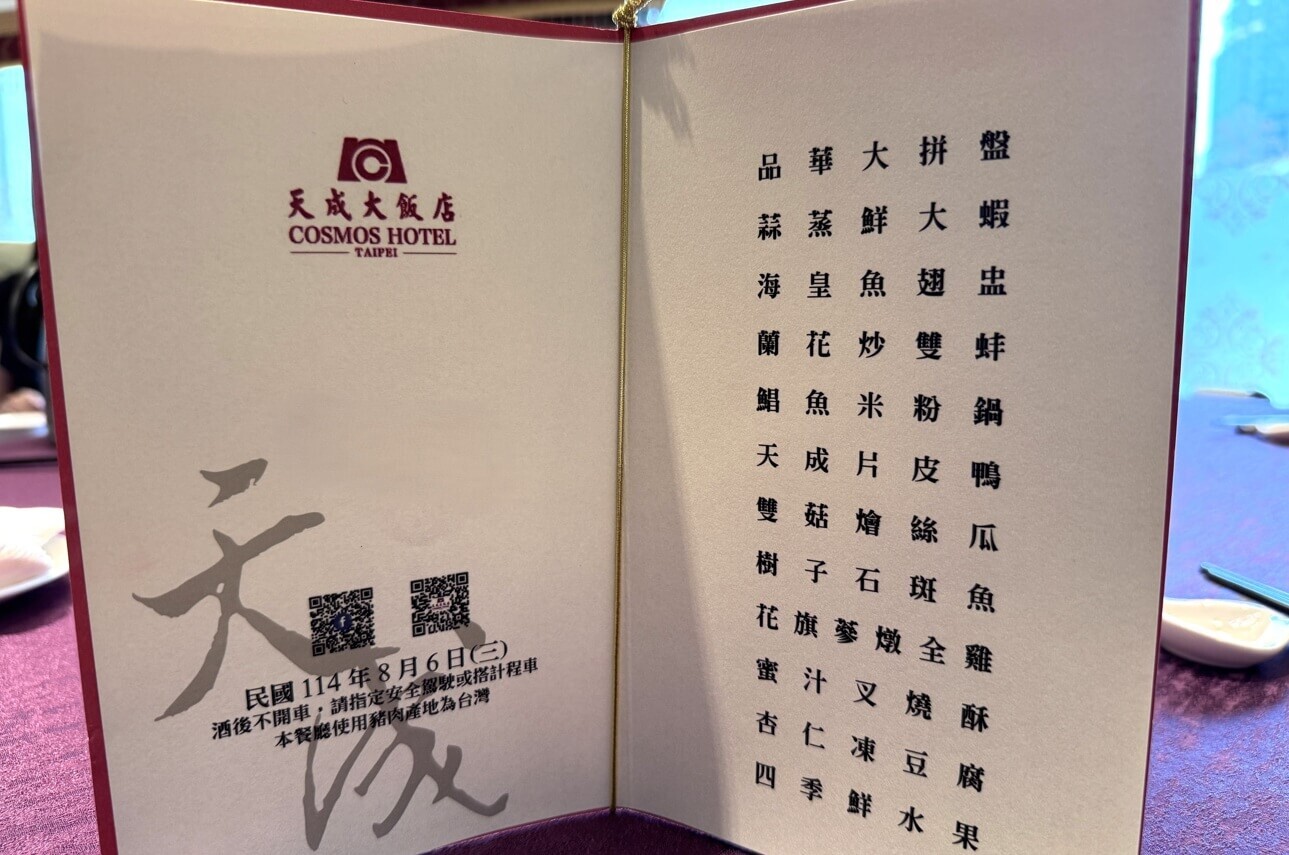 天成大飯店
COSMOS HOTEL
TAIPEI
天成
民國 114 年 8 月 6 日(三)
酒後不開車，請指定安全駕駛或搭計程車
本餐廳使用豬肉產地為台灣
品華大拼盤
蒜蒸鮮大蝦
海皇魚翅盅
蘭花炒雙蚌
鯧魚米粉鍋
天成片皮鴨
雙菇燴絲瓜
樹子石斑魚
花旗蔘燉全雞
蜜汁叉燒酥
杏仁凍豆腐
四季鮮水果